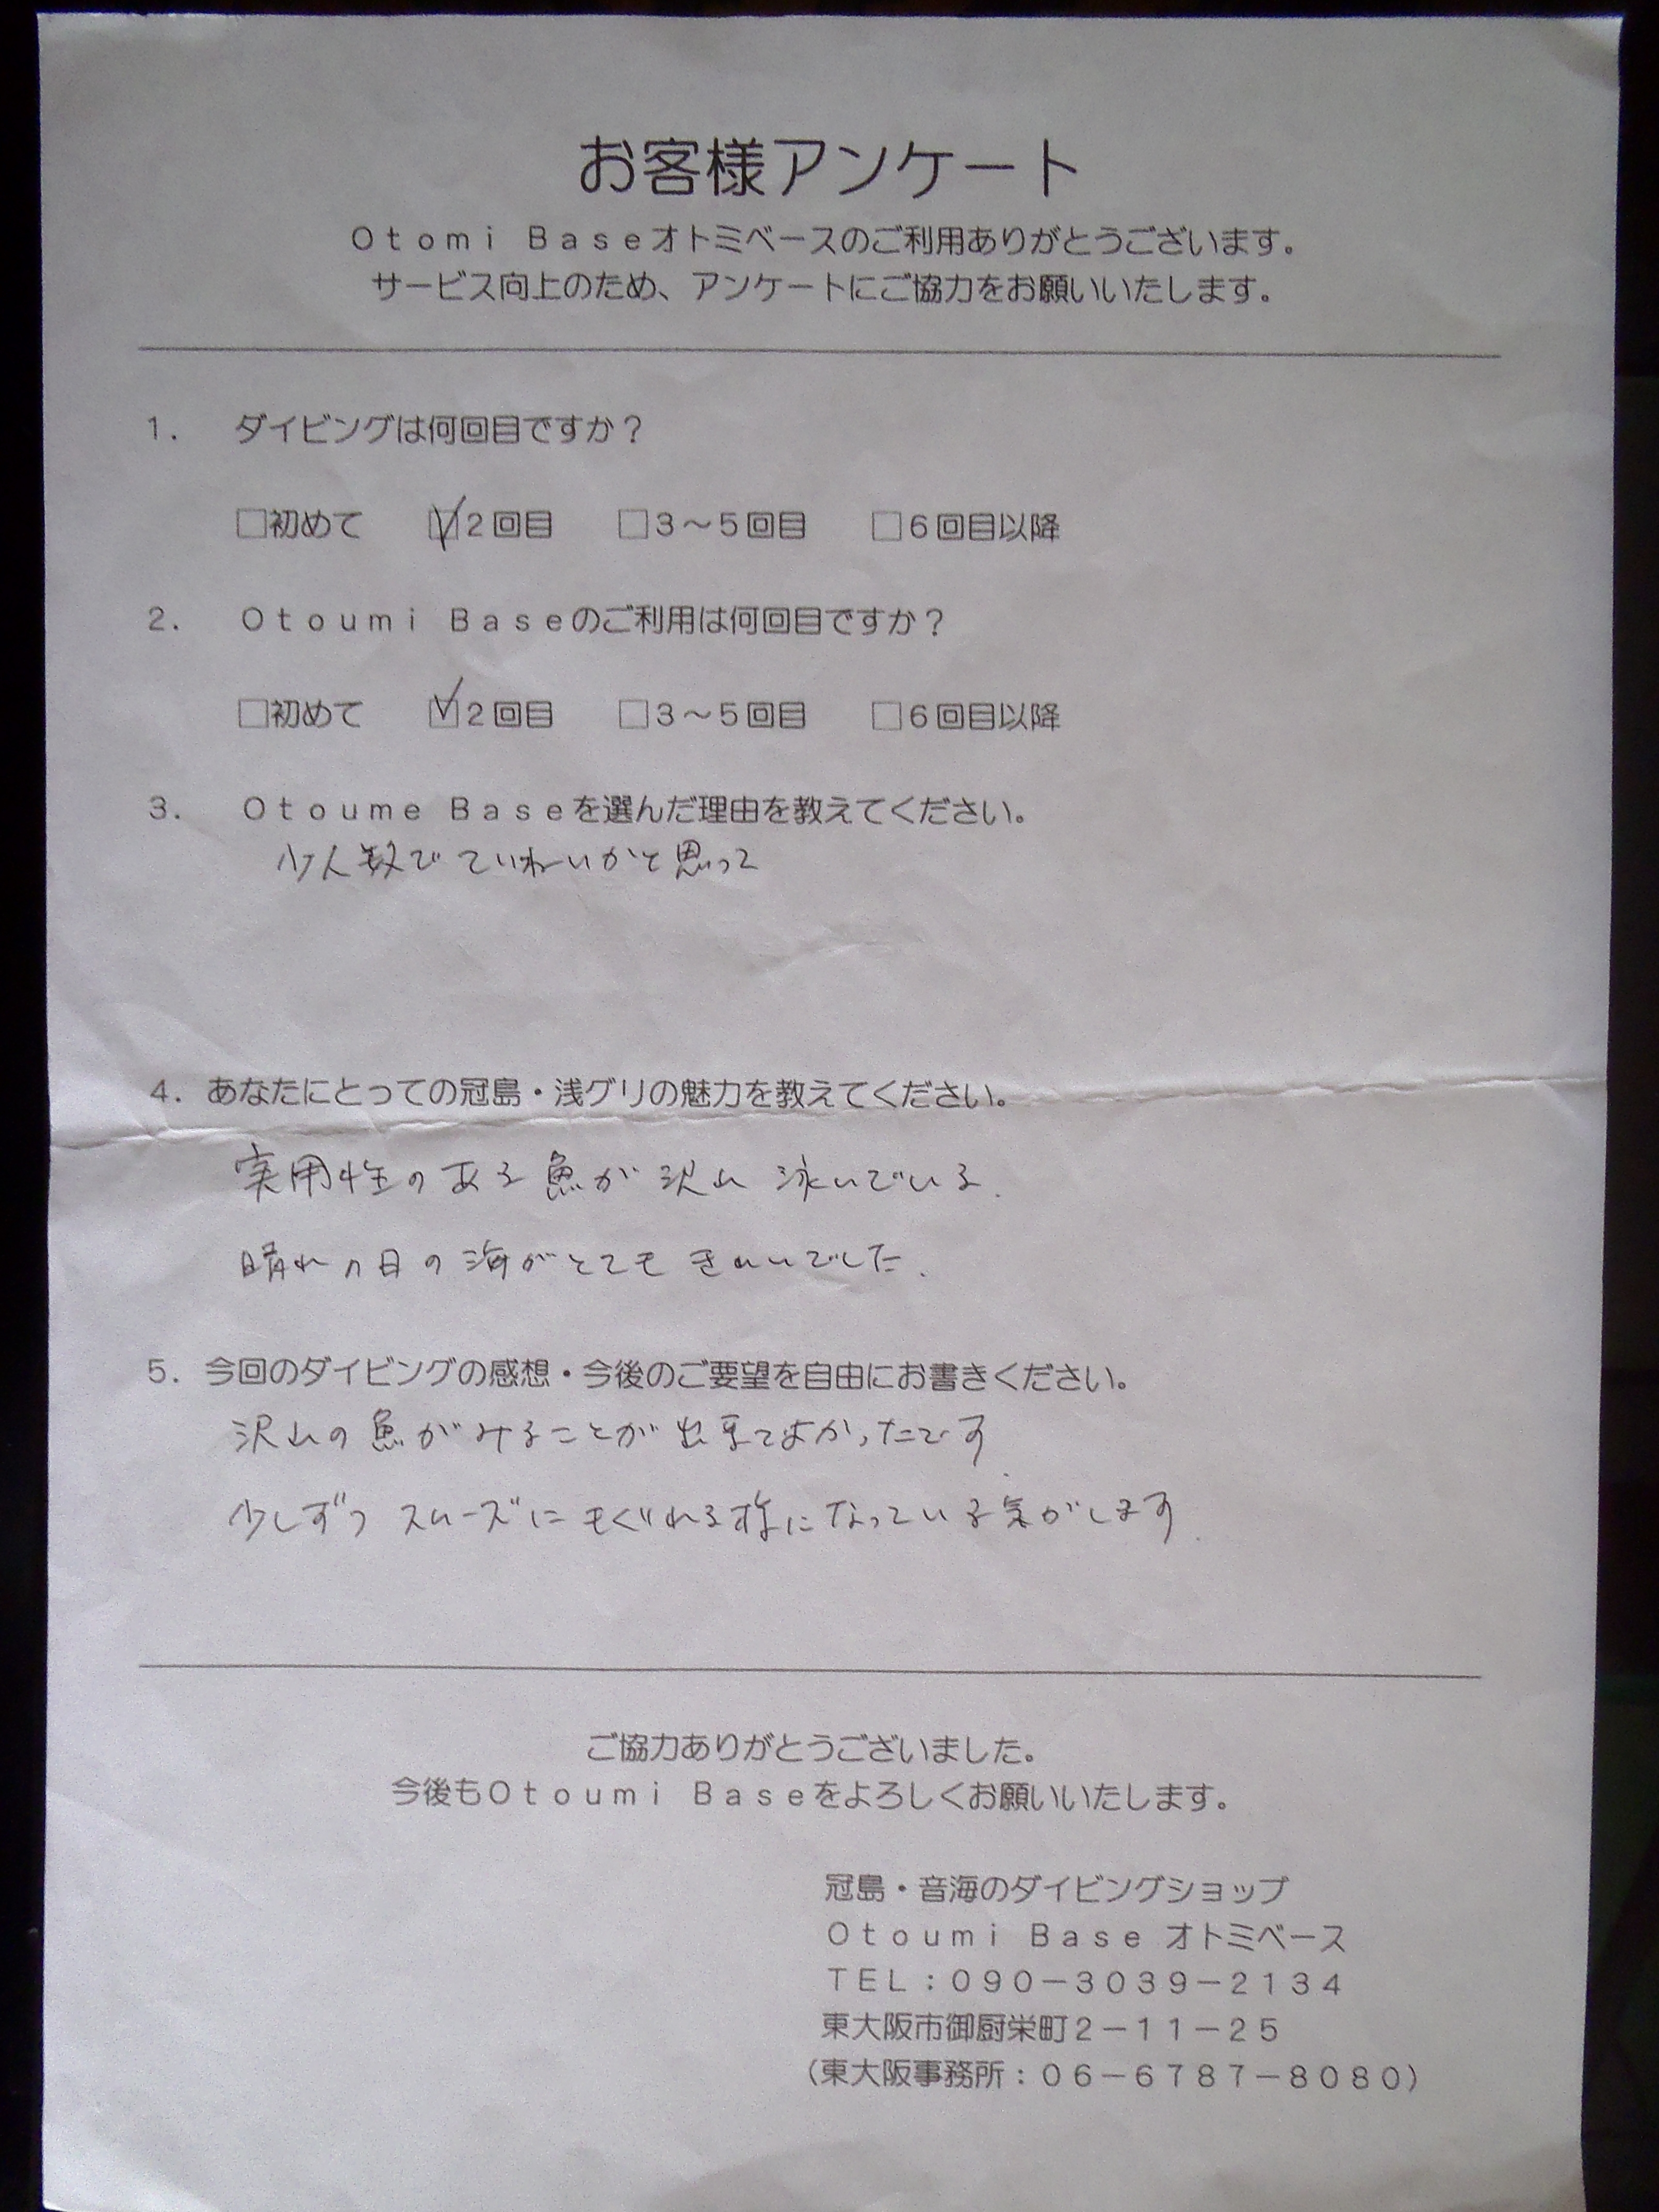 お客様アンケート
Ｏｔｏｍｉ　Ｂａｓｅオトミベースのご利用ありがとうございます。
サービス向上のため、アンケートにご協力をお願いいたします。
１．　ダイビングは何回目ですか？
□初めて　☑２回目　□３～５回目　□６回目以降
２．　Ｏｔｏｕｍｉ　Ｂａｓｅのご利用は何回目ですか？
□初めて　☑２回目　□３～５回目　□６回目以降
３．　Ｏｔｏｕｍｅ　Ｂａｓｅを選んだ理由を教えてください。
少人数でていねいかと思って
４．あなたにとっての冠島・浅グリの魅力を教えてください。
実用性のある魚が沢山泳いでいる.
晴れの日の海がとてもきれいでした.
５．今回のダイビングの感想・今後のご要望を自由にお書きください。
沢山の魚がみることが出来てよかったです.
少しずつスムーズにもぐれる様になっている気がします.
ご協力ありがとうございました。
今後もＯｔｏｕｍｉ　Ｂａｓｅをよろしくお願いいたします。
冠島・音海のダイビングショップ
Ｏｔｏｕｍｉ　Ｂａｓｅ　オトミベース
ＴＥＬ：０９０－３０３９－２１３４
東大阪市御厨栄町２－１１－２５
（東大阪事務所：０６－６７８７－８０８０）